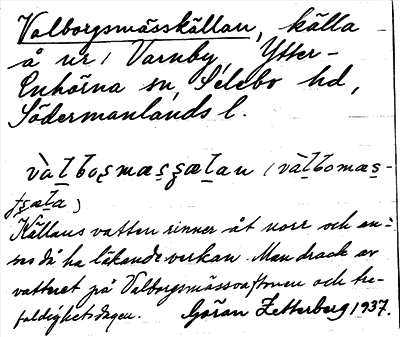 Valborgsmässkällan, källa
å nr 1 Varnby, Ytter-
Enhörna sn, Selebo hd,
Södermanlands l.
Källans vatten rinner åt norr och an-
ses då ha läkande verkan. Man drack av
vattnet på Valborgsmässoaftonen och tre-
faldighetsdagen. Göran Zetterberg 1937.